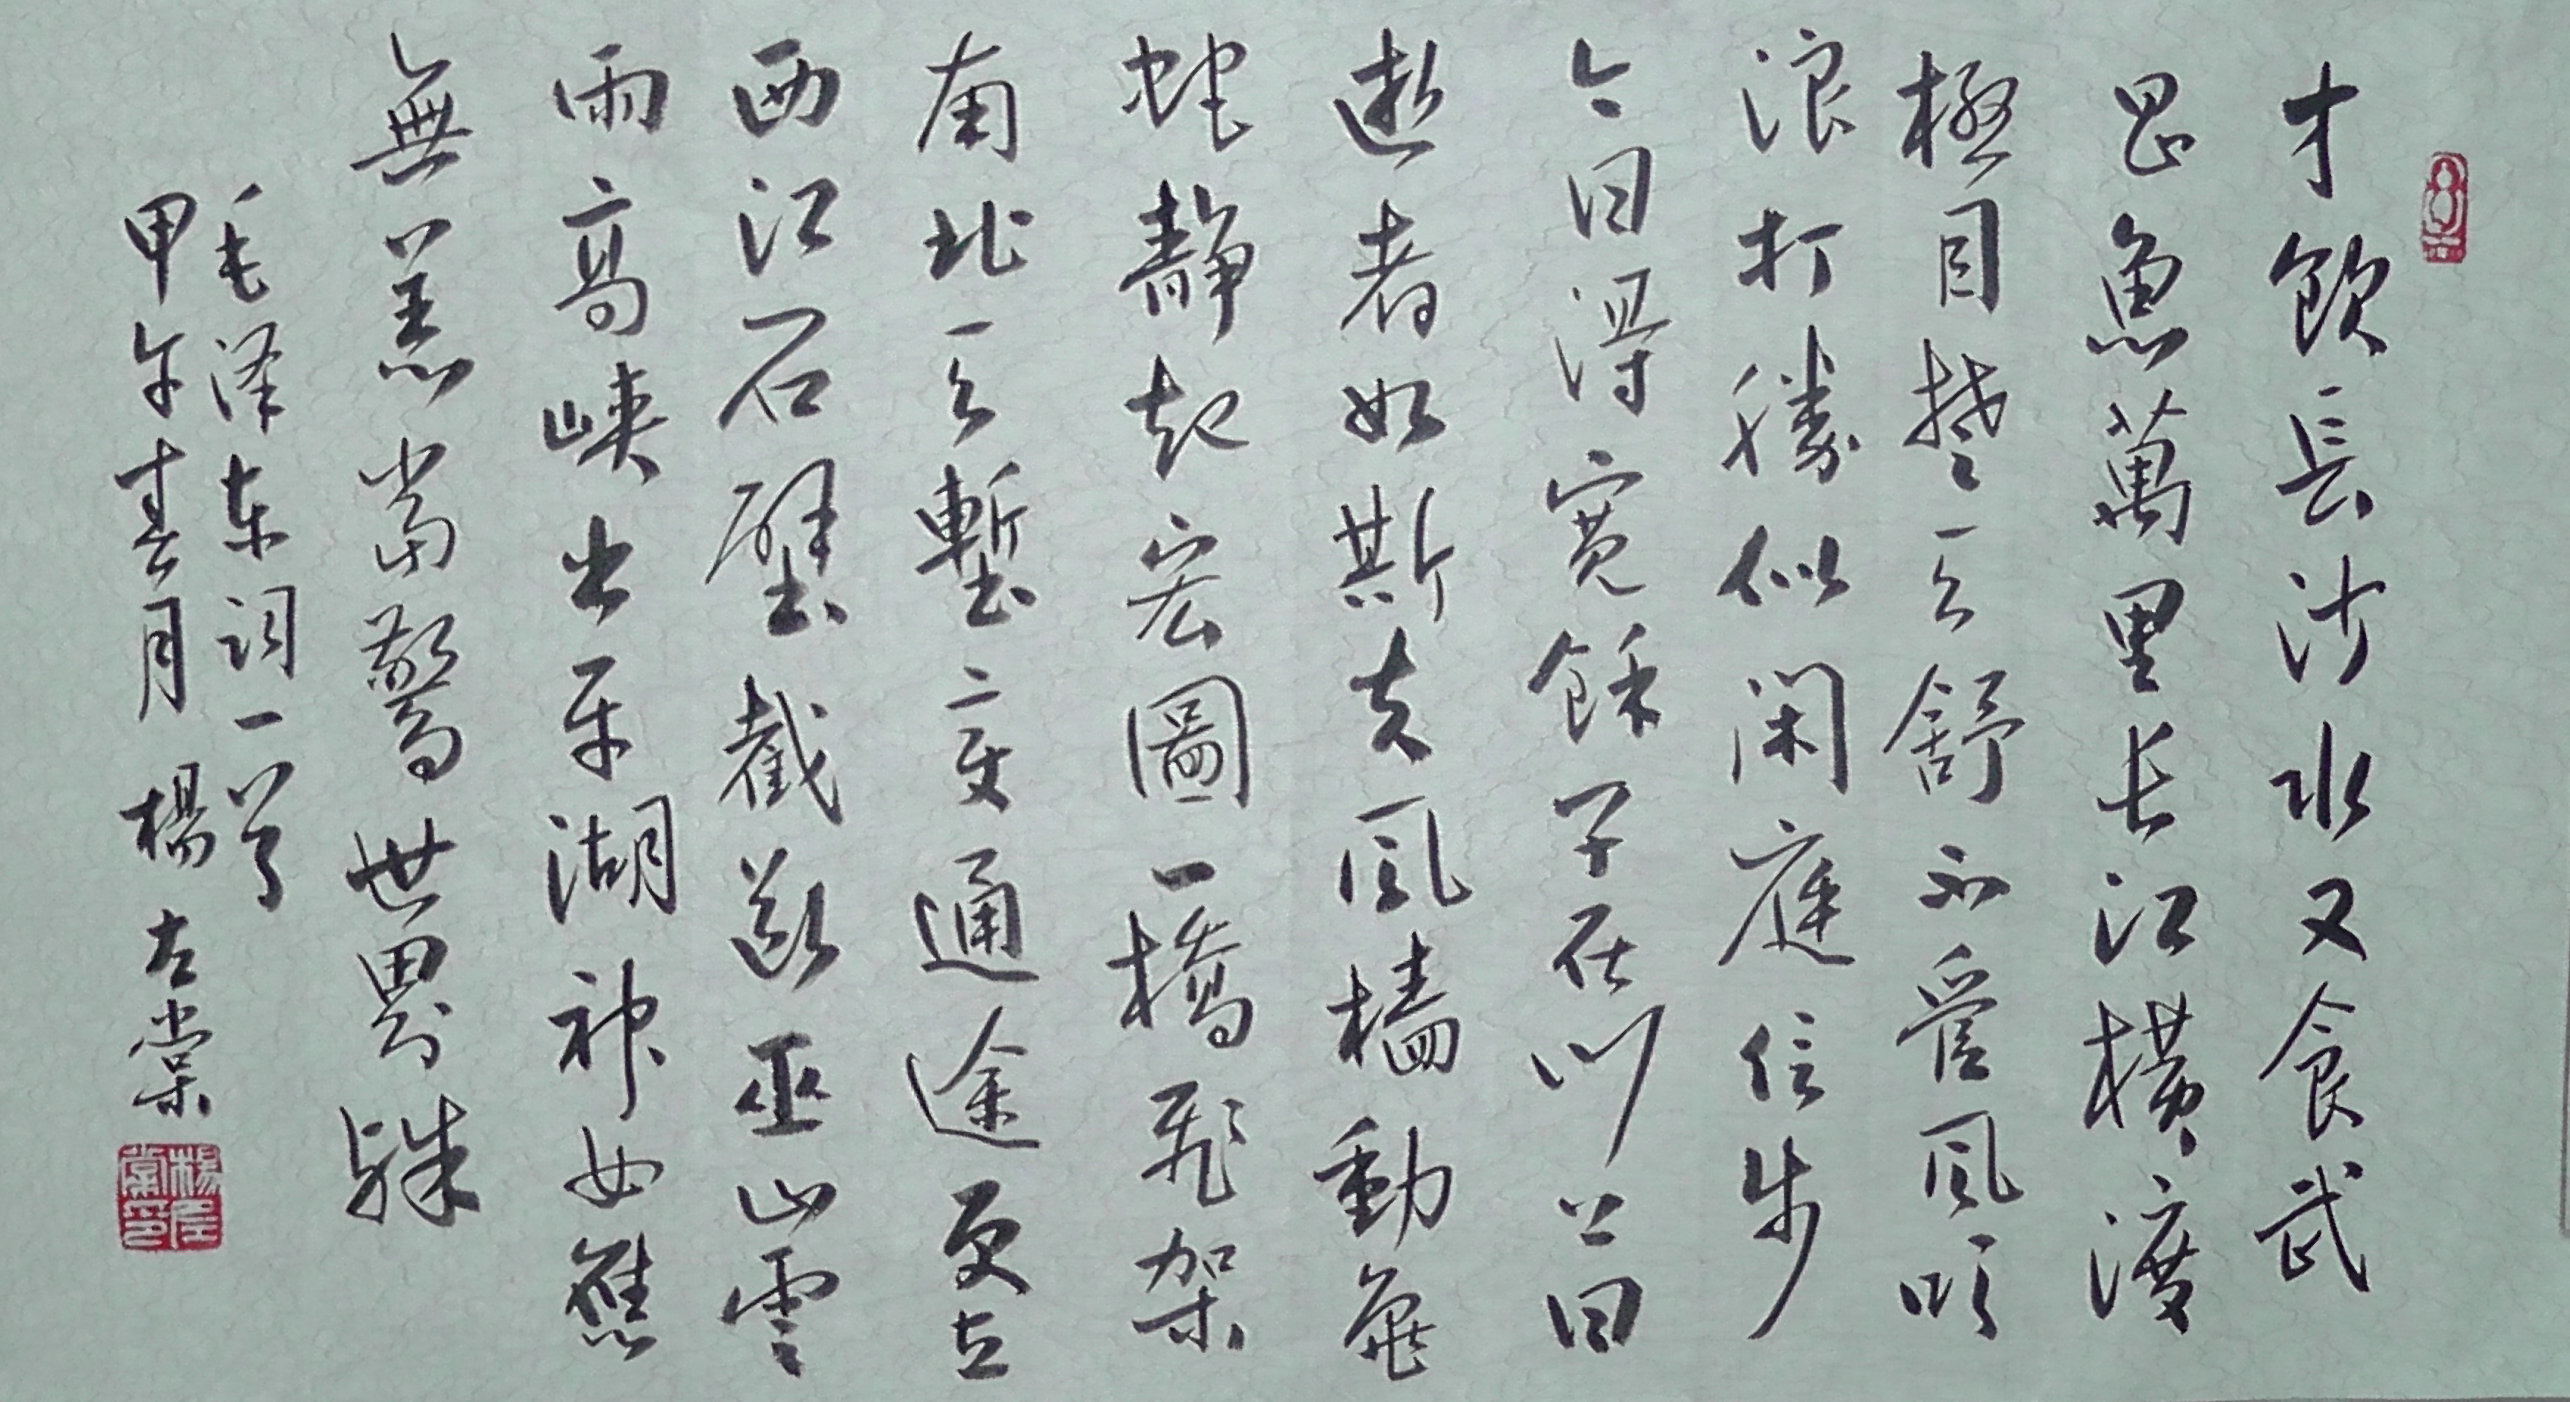 才飲長沙水又食武
昌魚萬里长江横渡
極目楚天舒不管風吹
浪打勝似闲庭信步
今日得寬餘子在川上曰
逝者如斯夫風檣動龜
蛇靜起宏圖一橋飛架
南北天塹变通途更立
西江石壁截断巫山雲
雨高峡出平湖神女應
無恙當驚世界殊
毛泽东词一首
甲午春月 楊左棠
楊左棠印